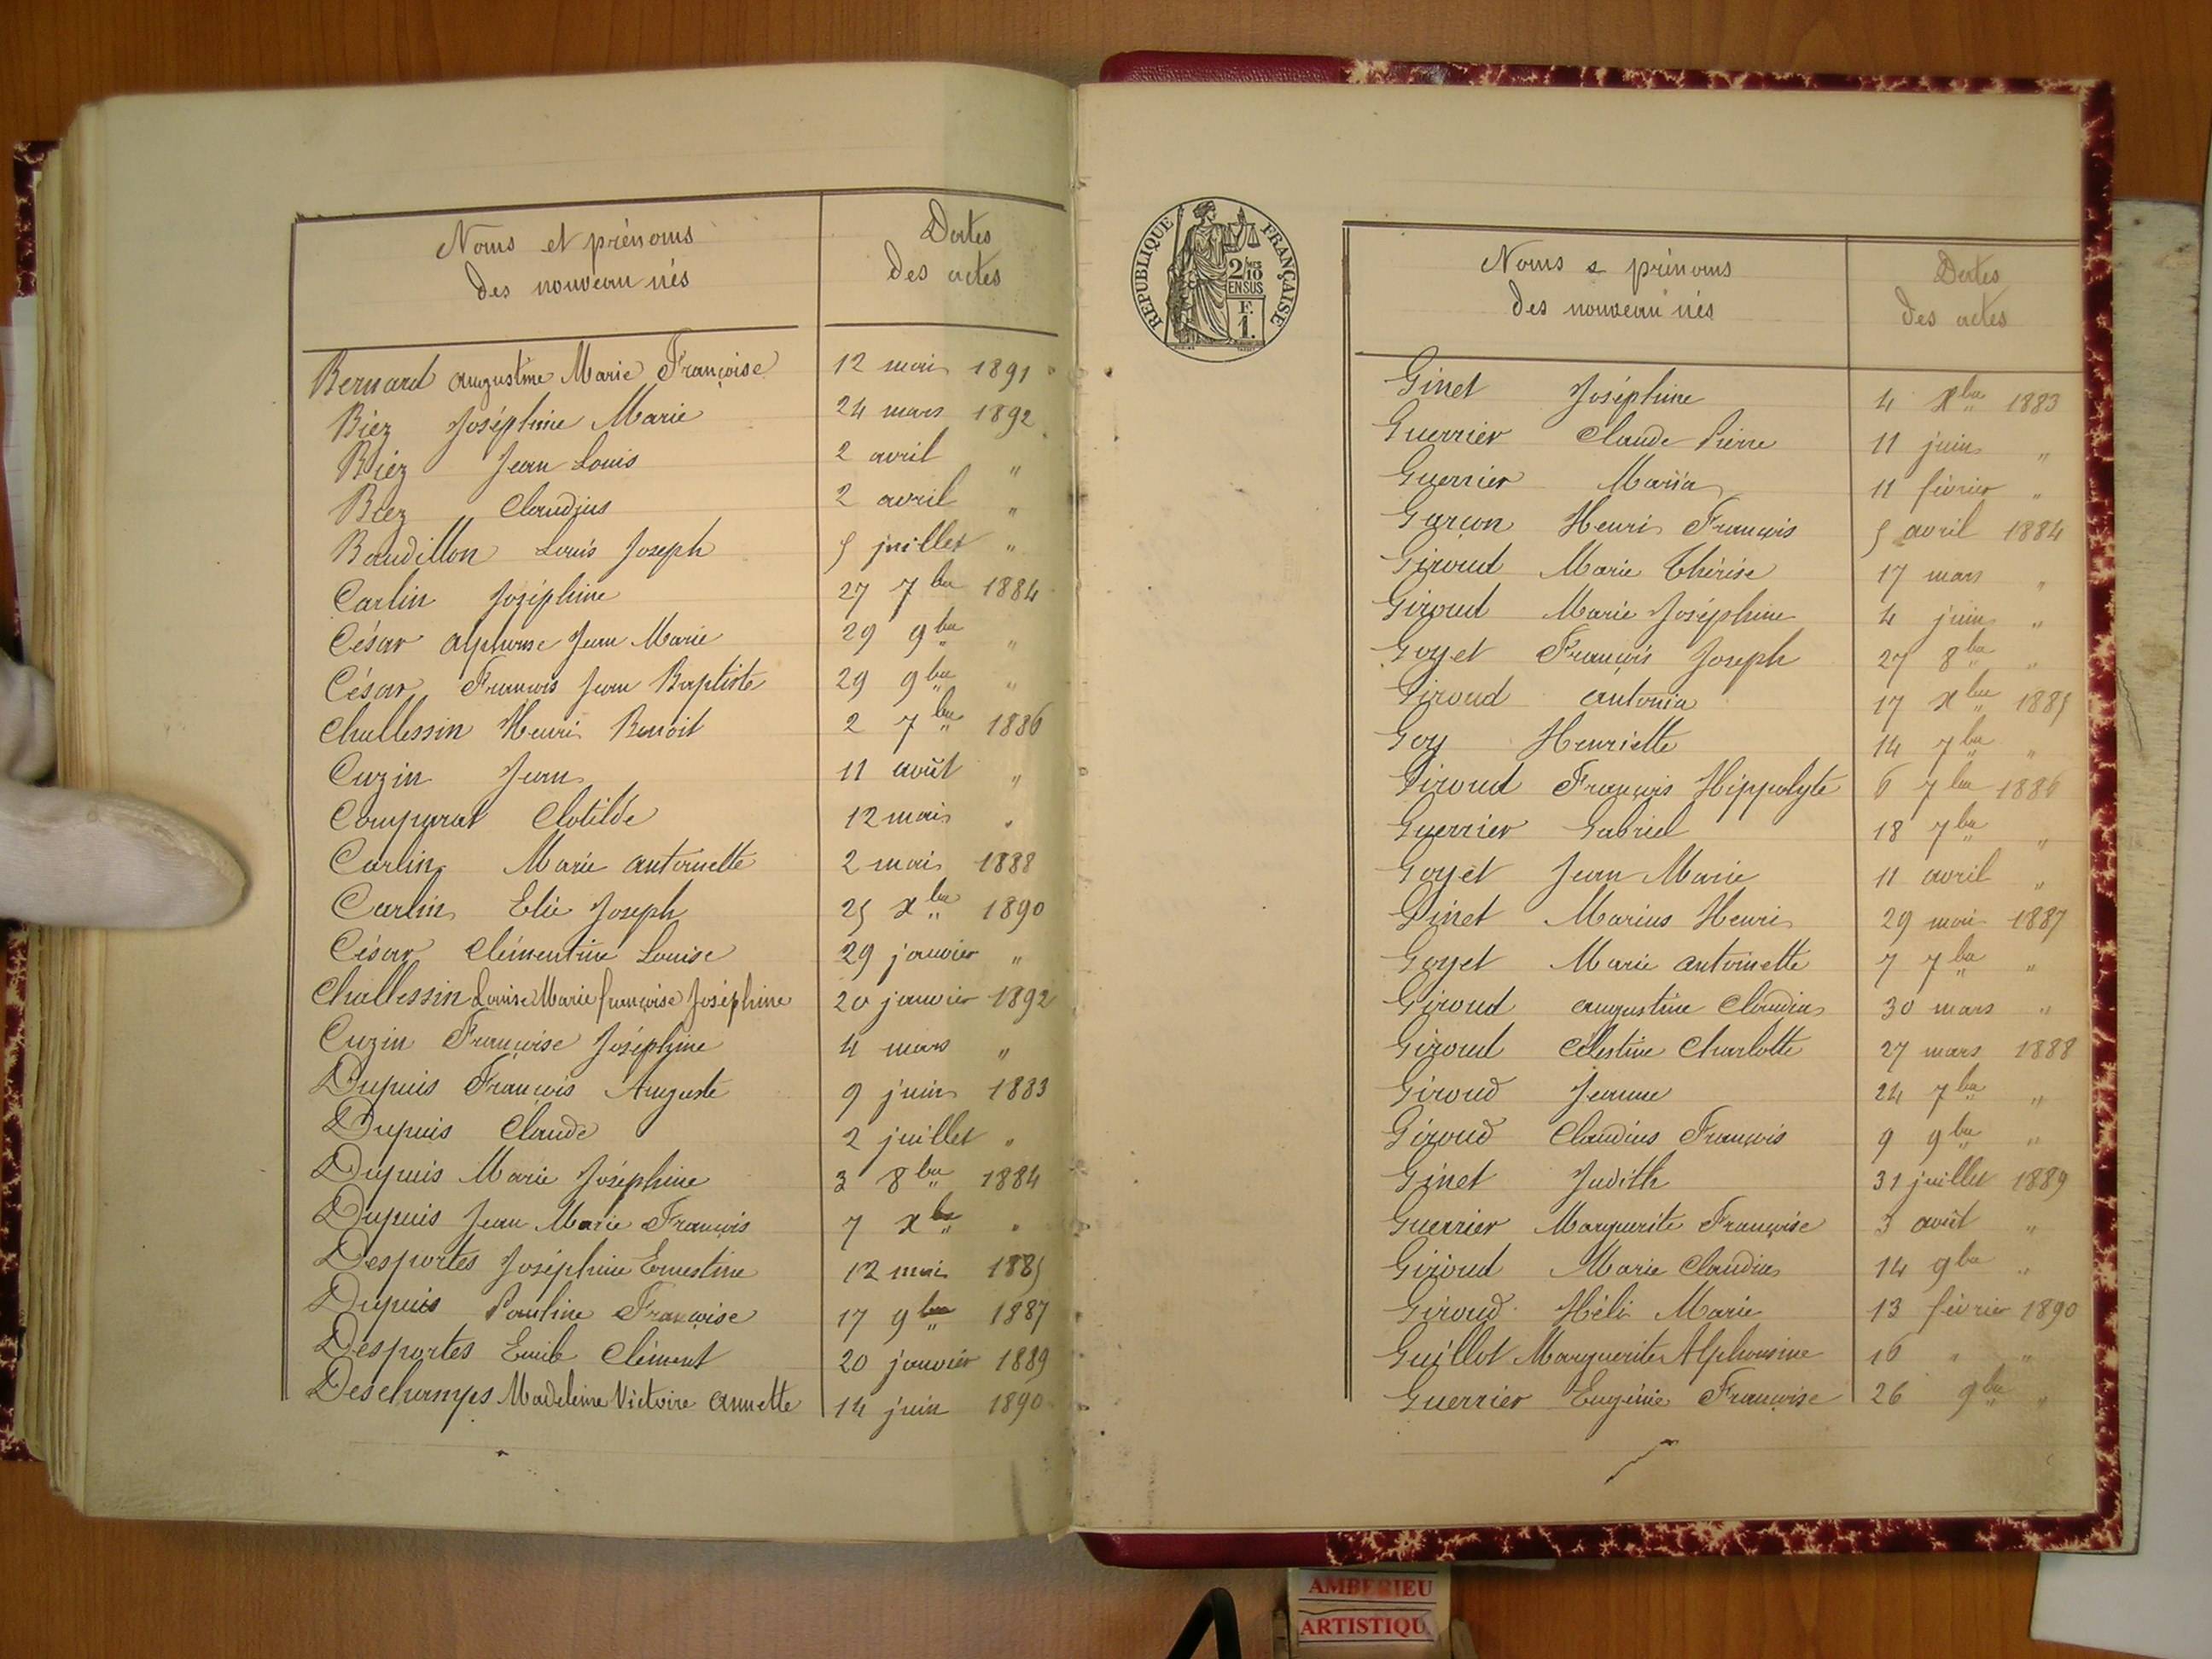 Noms et prénoms
des nouveau nés
Dates
des actes
Bernard Augustine Marie Françoise 12 mai 1891
Biez Joséphine Marie 24 mars 1892
Biez Jean Louis 2 avril "
Biez Claudius 2 avril "
Baudillon Louis Joseph 5 juillet "
Carlin Joséphine 27 7bre 1884
César Alphonse Jean Marie 29 9bre "
César François Jean Baptiste 29 9bre "
Challessin Henri Benoit 2 7bre 1886
Cuzin Jean 11 août "
Comparat Clotilde 12 mai "
Carlin Marie Antoinette 2 mai 1888
Carlin Elie Joseph 25 Xbre 1890
César Clémentine Louise 29 janvier "
Challessin Louise Marie françoise Joséphine 20 janvier 1892
Cuzin Françoise Joséphine 4 mars "
Dupuis François Auguste 9 juin 1883
Dupuis Claude 2 juillet "
Dupuis Marie Joséphine 3 8bre 1884
Dupuis Jean Marie François 7 Xbre "
Desportes Joséphine Ernestine 12 mai 1885
Dupuis Pauline Françoise 17 9bre 1887
Desportes Emile Clément 20 janvier 1889
Deschamps Madeleine Victoire Annette 14 juin 1890
REPUBLIQUE FRANÇAISE
2/10 MES
EN SUS
F.
1.
Noms & prénoms
des nouveau nés
Dates
des actes
Ginet Joséphine 4 Xbre 1883
Guerrier Claude Pierre 11 juin "
Guerrier Maria 11 février "
Garçon Henri François 5 avril 1884
Giroud Marie Thérèse 17 mars "
Giroud Marie Joséphine 4 juin "
Goyet François Joseph 27 8bre "
Giroud Antonia 17 Xbre 1885
Goy Henriette 14 7bre "
Giroud François Hippolyte 6 7bre 1886
Guerrier Gabriel 18 7bre "
Goyet Jean Marie 11 avril "
Ginet Marius Henri 29 mai 1887
Goyet Marie Antoinette 7 7bre "
Giroud Augustine Claudia 30 mars "
Giroud Célestine Charlotte 27 mars 1888
Giroud Jeanne 24 7bre "
Giroud Claudius François 9 9bre "
Ginet Judith 31 juillet 1889
Guerrier Marguerite Françoise 3 août "
Giroud Marie Claudia 14 9bre "
Giroud Héli Marie 13 février 1890
Guillot Marguerite Alphonsine 16 " "
Guerrier Eugénie Françoise 26 9bre "
AMBERIEU
ARTISTIQU